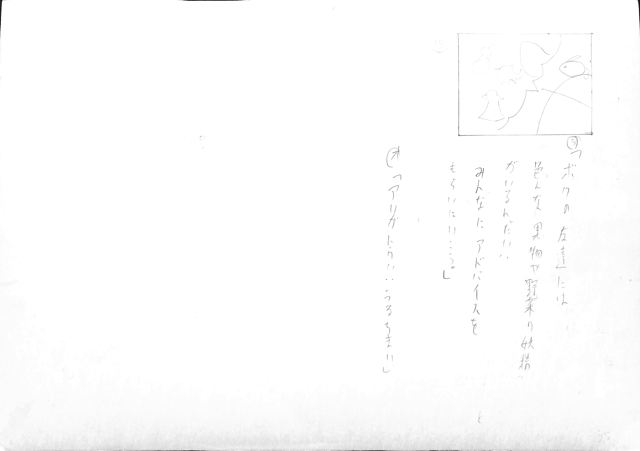 「ボクの友達には
色んな果物や野菜の妖精
がいるんだ‥
みんなにアドバイスを
もらいにいこう。」
オ「アリガトウ‥うるちまい」